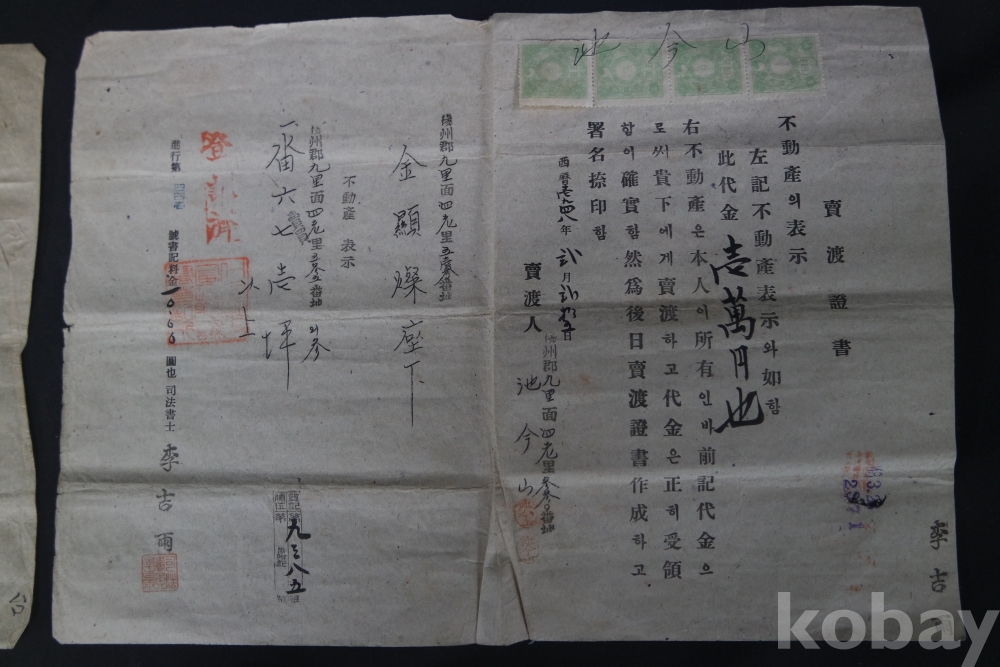 山今池
賣渡證書
不動產의表示
左記不動產表示와如함
此代金壱萬円也
右不動產은本人이所有인바前記代金으
로써貴下에게賣渡하고代金은正히受領
함이確實함然爲後日賣渡證書作成하고
署名捺印함
西曆壱九四八年 月 日
州郡九里面四老里 番地
賣渡人 池今山
李吉
楊州郡九里面四老里 番地
金顯燦座下
不動產表示
楊州郡九里面四老里 番地
一畓六七壱坪
以上
九三八五
登記濟
進行第 號書記料金一0.60圓也 司法書士 李吉雨
kobay